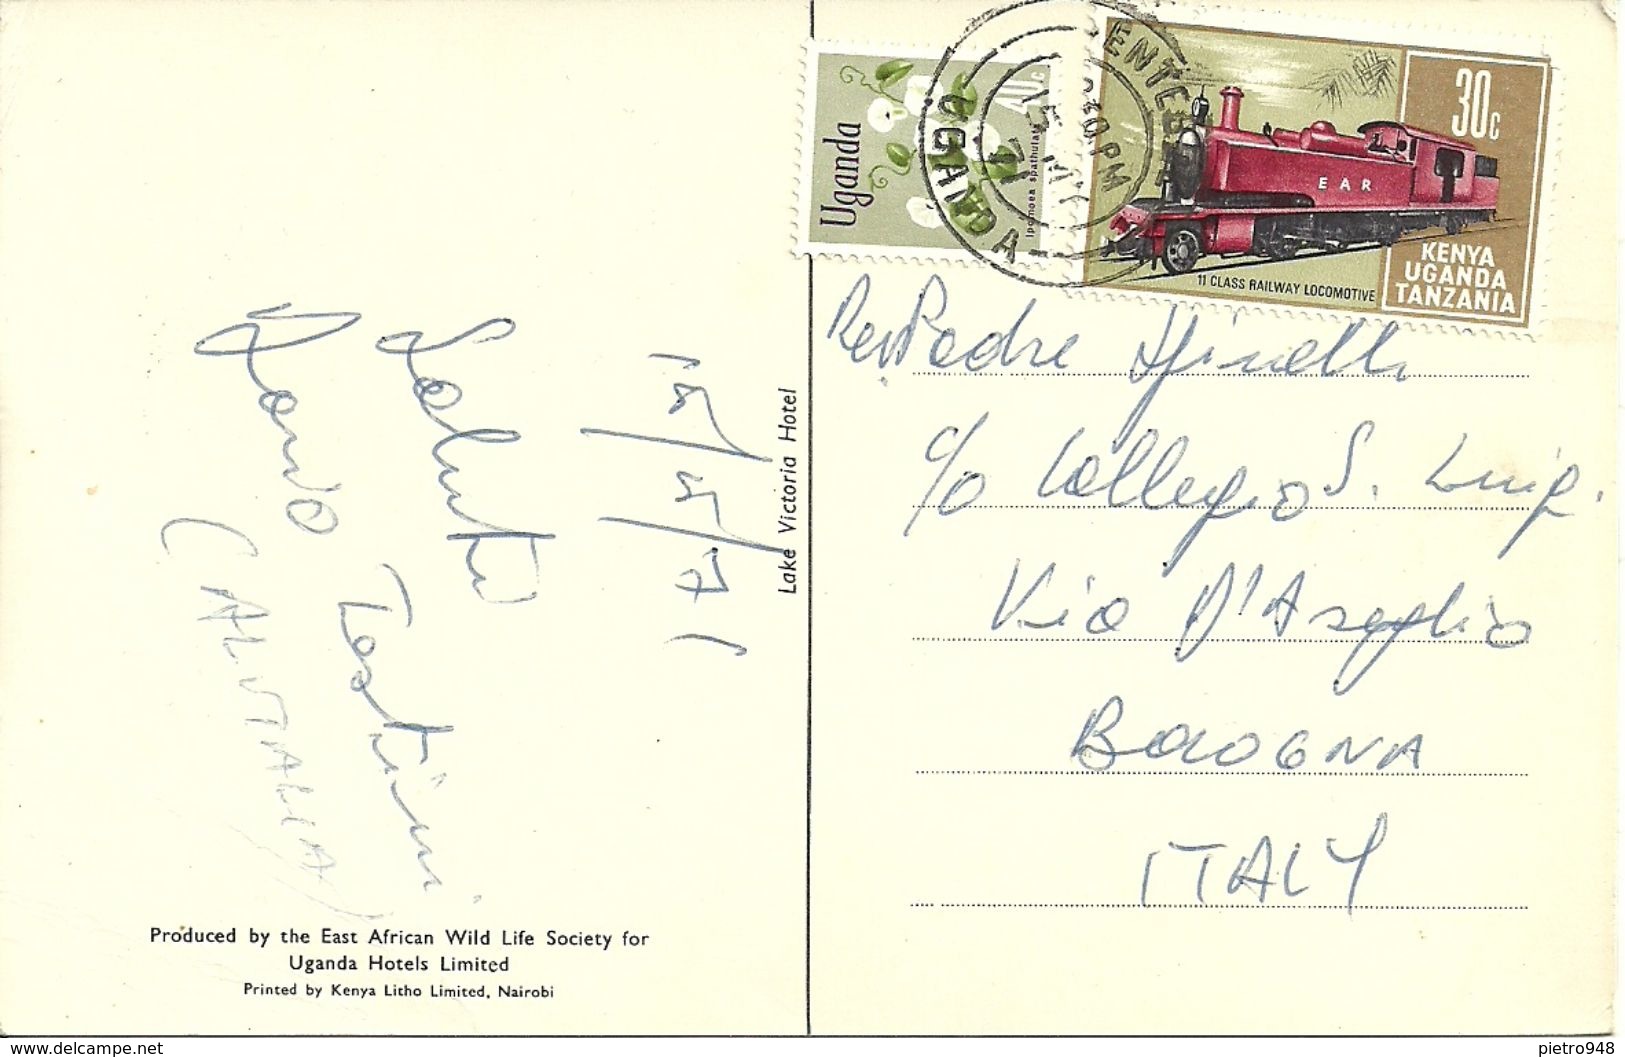 15/5/71
Saluti
Testini
(ALITALIA)
Lake Victoria Hotel
Produced by the East African Wild Life Society for
Uganda Hotels Limited
Printed by Kenya Litho Limited, Nairobi
Uganda
40c
Ipomoea spathulata
ENTEBBE
UGANDA
PM
15 MY
71
30c
EAR
KENYA
UGANDA
TANZANIA
11 CLASS RAILWAY LOCOMOTIVE
Rev Padre Spinelli
c/o Collegio S. Luigi
Via D'Azeglio
BOLOGNA
ITALY
www.delcampe.net
pietro948